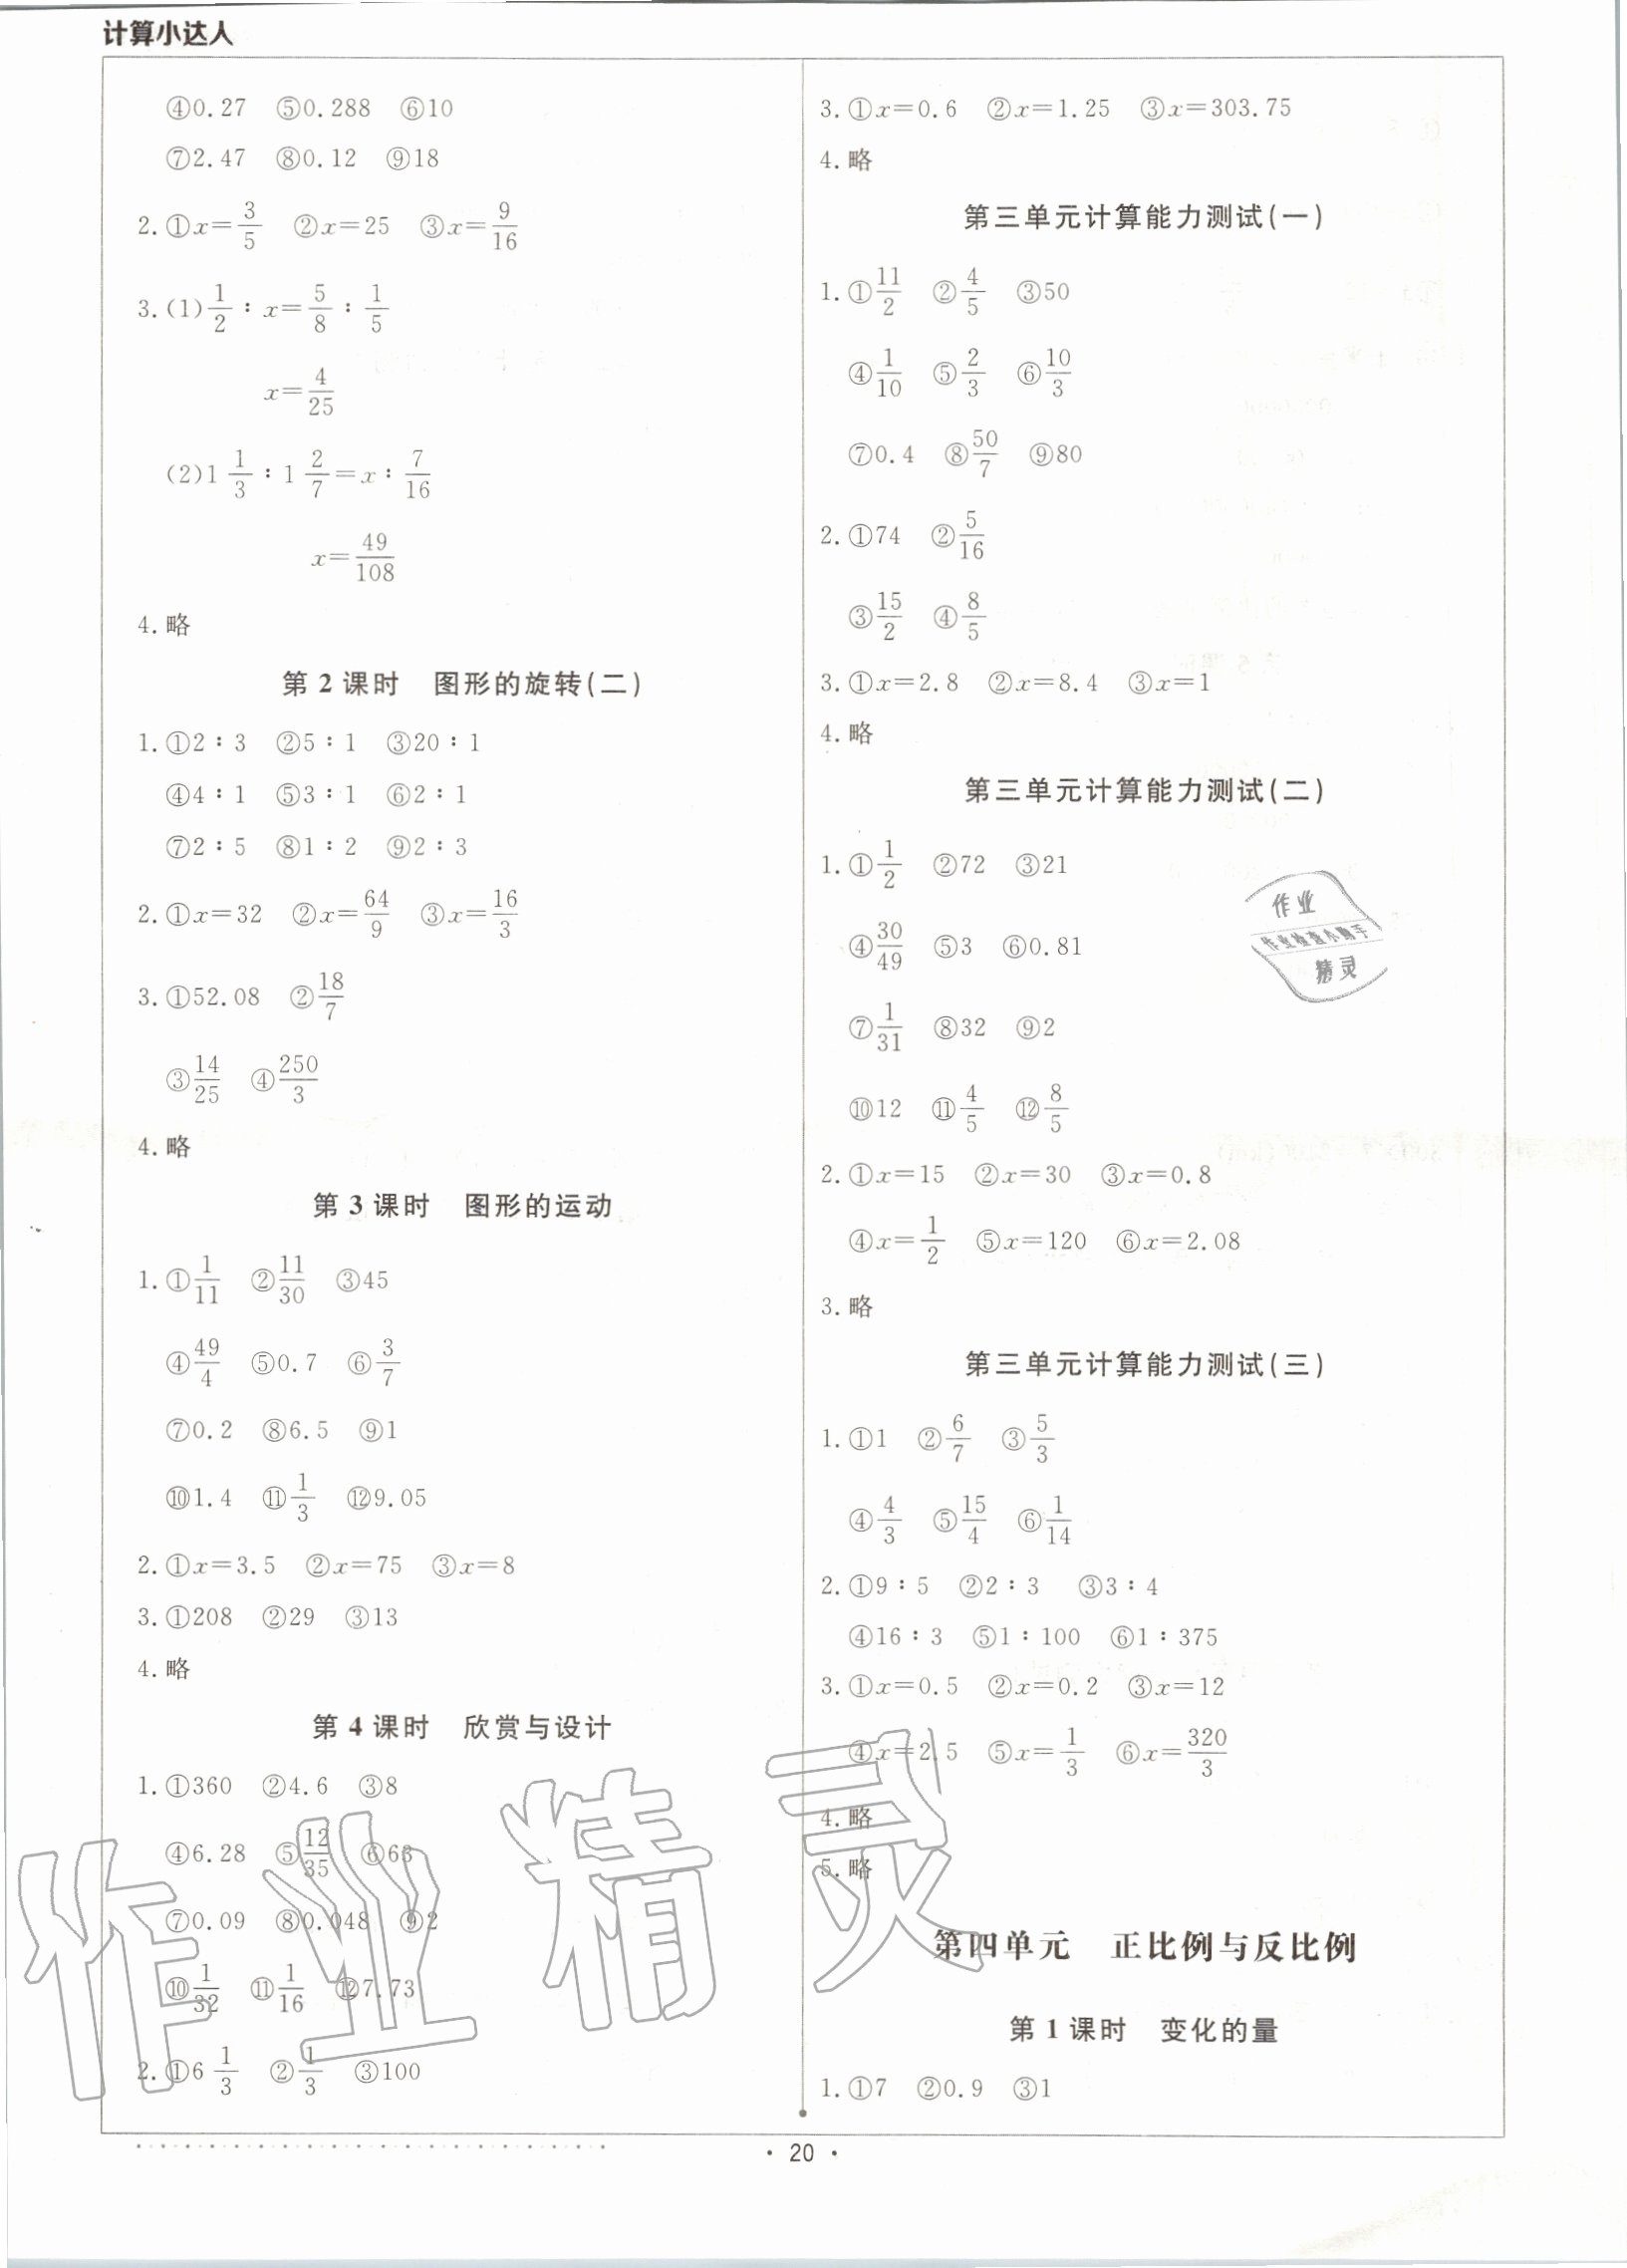 计算小达人
④0.27 ⑤0.288 ⑥10
⑦2.47 ⑧0.12 ⑨18
2.①x=3/5 ②x=25 ③x=9/16
3.(1)1/2∶x=5/8∶1/5
x=4/25
(2)1 1/3∶1 2/7=x∶7/16
x=49/108
4.略
第2课时 图形的旋转(二)
1.①2∶3 ②5∶1 ③20∶1
④4∶1 ⑤3∶1 ⑥2∶1
⑦2∶5 ⑧1∶2 ⑨2∶3
2.①x=32 ②x=64/9 ③x=16/3
3.①52.08 ②18/7
③14/25 ④250/3
4.略
第3课时 图形的运动
1.①1/11 ②11/30 ③45
④49/4 ⑤0.7 ⑥3/7
⑦0.2 ⑧6.5 ⑨1
⑩1.4 ⑪1/3 ⑫9.05
2.①x=3.5 ②x=75 ③x=8
3.①208 ②29 ③13
4.略
第4课时 欣赏与设计
1.①360 ②4.6 ③8
④6.28 ⑤12/35 ⑥63
⑦0.09 ⑧0.048 ⑨2
⑩1/32 ⑪1/16 ⑫7.73
2.①6 1/3 ②1/3 ③100
3.①x=0.6 ②x=1.25 ③x=303.75
4.略
第三单元计算能力测试(一)
1.①11/2 ②4/5 ③50
④1/10 ⑤2/3 ⑥10/3
⑦0.4 ⑧50/7 ⑨80
2.①74 ②5/16
③15/2 ④8/5
3.①x=2.8 ②x=8.4 ③x=1
4.略
第三单元计算能力测试(二)
1.①1/2 ②72 ③21
④30/49 ⑤3 ⑥0.81
⑦1/31 ⑧32 ⑨2
⑩12 ⑪4/5 ⑫8/5
2.①x=15 ②x=30 ③x=0.8
④x=1/2 ⑤x=120 ⑥x=2.08
3.略
第三单元计算能力测试(三)
1.①1 ②6/7 ③5/3
④4/3 ⑤15/4 ⑥1/14
2.①9∶5 ②2∶3 ③3∶4
④16∶3 ⑤1∶100 ⑥1∶375
3.①x=0.5 ②x=0.2 ③x=12
④x=2.5 ⑤x=1/3 ⑥x=320/3
4.略
5.略
第四单元 正比例与反比例
第1课时 变化的量
1.①7 ②0.9 ③1
作业
作业检查小助手
精灵
作业精灵
·20·